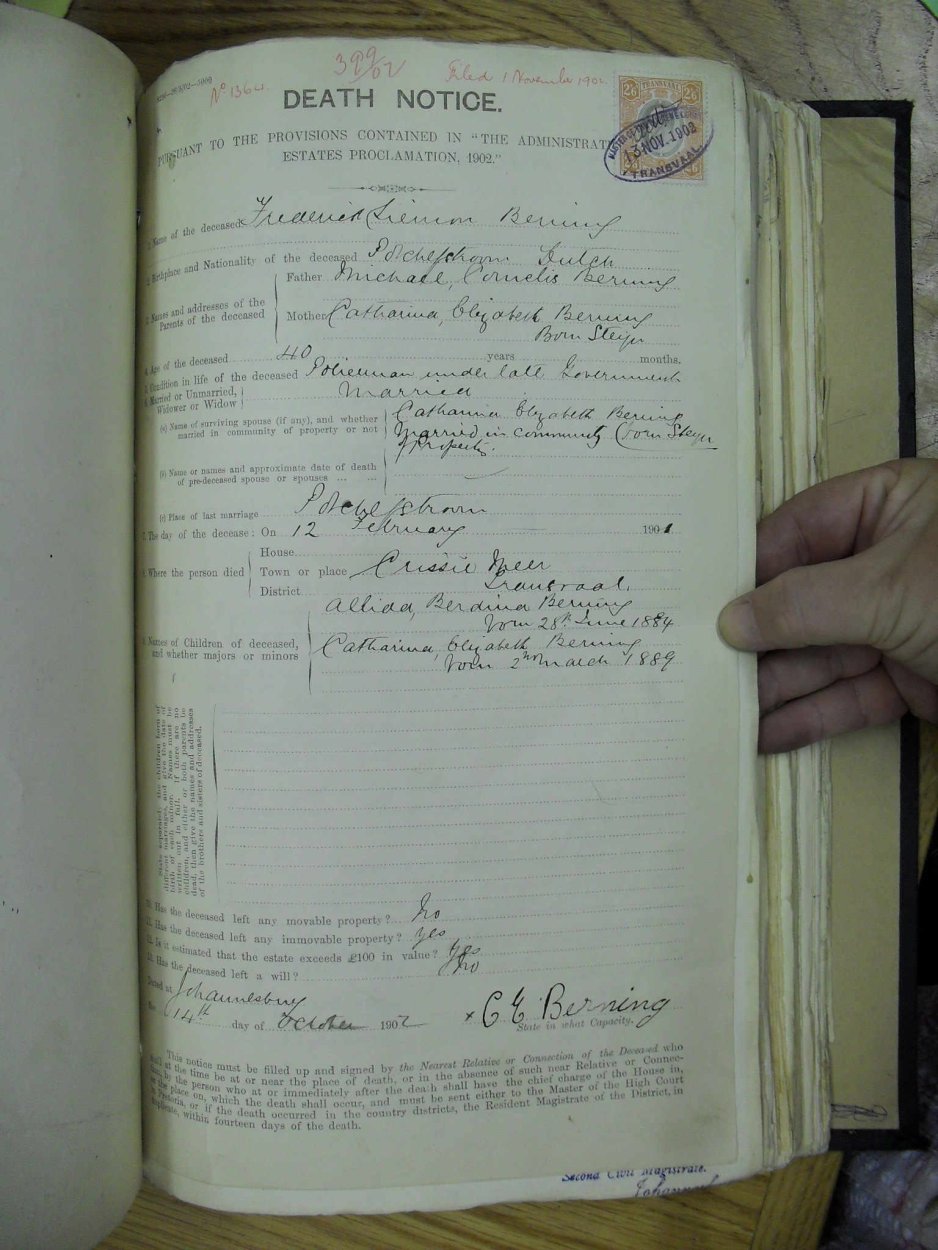 399/02
Filed 1 November 1902
No 1364
DEATH NOTICE.
PURSUANT TO THE PROVISIONS CONTAINED IN "THE ADMINISTRATI
ESTATES PROCLAMATION, 1902."
TRANSVAAL
2/6 2/6
13 NOV. 1902
TRANSVAAL
1. Name of the deceased Frederick Siemon Berning
2. Birthplace and Nationality of the deceased Potchefstroom Dutch
3. Names and addresses of the Parents of the deceased
Father Michael Cornelis Berning
Mother Catharina Elizabeth Berning
Born Steyn
4. Age of the deceased 40 years months.
5. Condition in life of the deceased Policeman under late Government
6. Married or Unmarried, Widower or Widow Married
(a) Name of surviving spouse (if any), and whether married in community of property or not
Catharina Elizabeth Berning
Married in community (born Steyn
of Property.
(b) Name or names and approximate date of death of pre-deceased spouse or spouses ... ...
(c) Place of last marriage Potchefstroom
7. The day of the decease: On 12 February 1901
8. Where the person died
House
Town or place Crissie Meer
District Transvaal.
9. Names of Children of deceased, and whether majors or minors
Allida Berdina Berning
born 28th June 1884
Catharina Elizabeth Berning
born 2nd March 1889
State separately the children born of
different marriages, and give the date of
birth of each minor. Names must be
written out in full. If there are no
children, and either or both parents be
dead, then give the names and addresses
of the brothers and sisters of deceased.
10. Has the deceased left any movable property? No
11. Has the deceased left any immovable property? yes
12. Is it estimated that the estate exceeds £100 in value? Yes
13. Has the deceased left a will? No
Dated at Johannesburg
the 14th day of October 1902
x C E Berning
State in what Capacity.
This notice must be filled up and signed by the Nearest Relative or Connection of the Deceased who
shall at the time be at or near the place of death, or in the absence of such near Relative or Connec-
tion, by the person who at or immediately after the death shall have the chief charge of the House in,
or the place on, which the death shall occur, and must be sent either to the Master of the High Court
in Pretoria, or if the death occurred in the country districts, the Resident Magistrate of the District, in
duplicate, within fourteen days of the death.
Second Civil Magistrate.